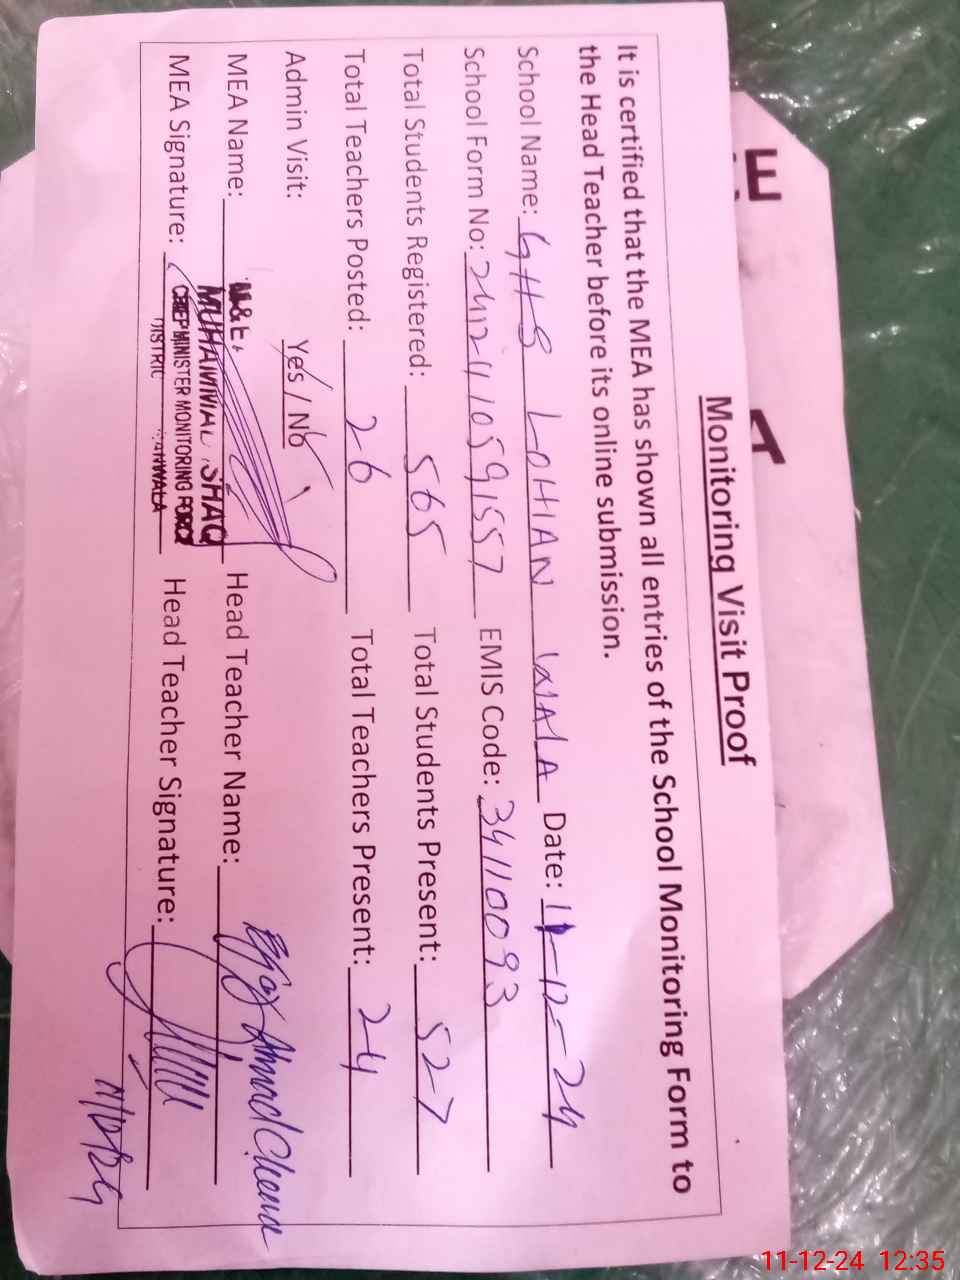 Monitoring Visit Proof
It is certified that the MEA has shown all entries of the School Monitoring Form to
the Head Teacher before its online submission.
School Name: GHS LOHIAN WALA Date: 11-12-24
School Form No: 2412410591557 EMIS Code: 34110093
Total Students Registered: 565 Total Students Present: 527
Total Teachers Posted: 26 Total Teachers Present: 24
Admin Visit: Yes / No
M&E
MEA Name: MUHAMMAD Head Teacher Name: Ahmad Cheema
MEA Signature: CHIEF MINISTER MONITORING FORCE Head Teacher Signature:
DISTRIC
11-12-24 12:35